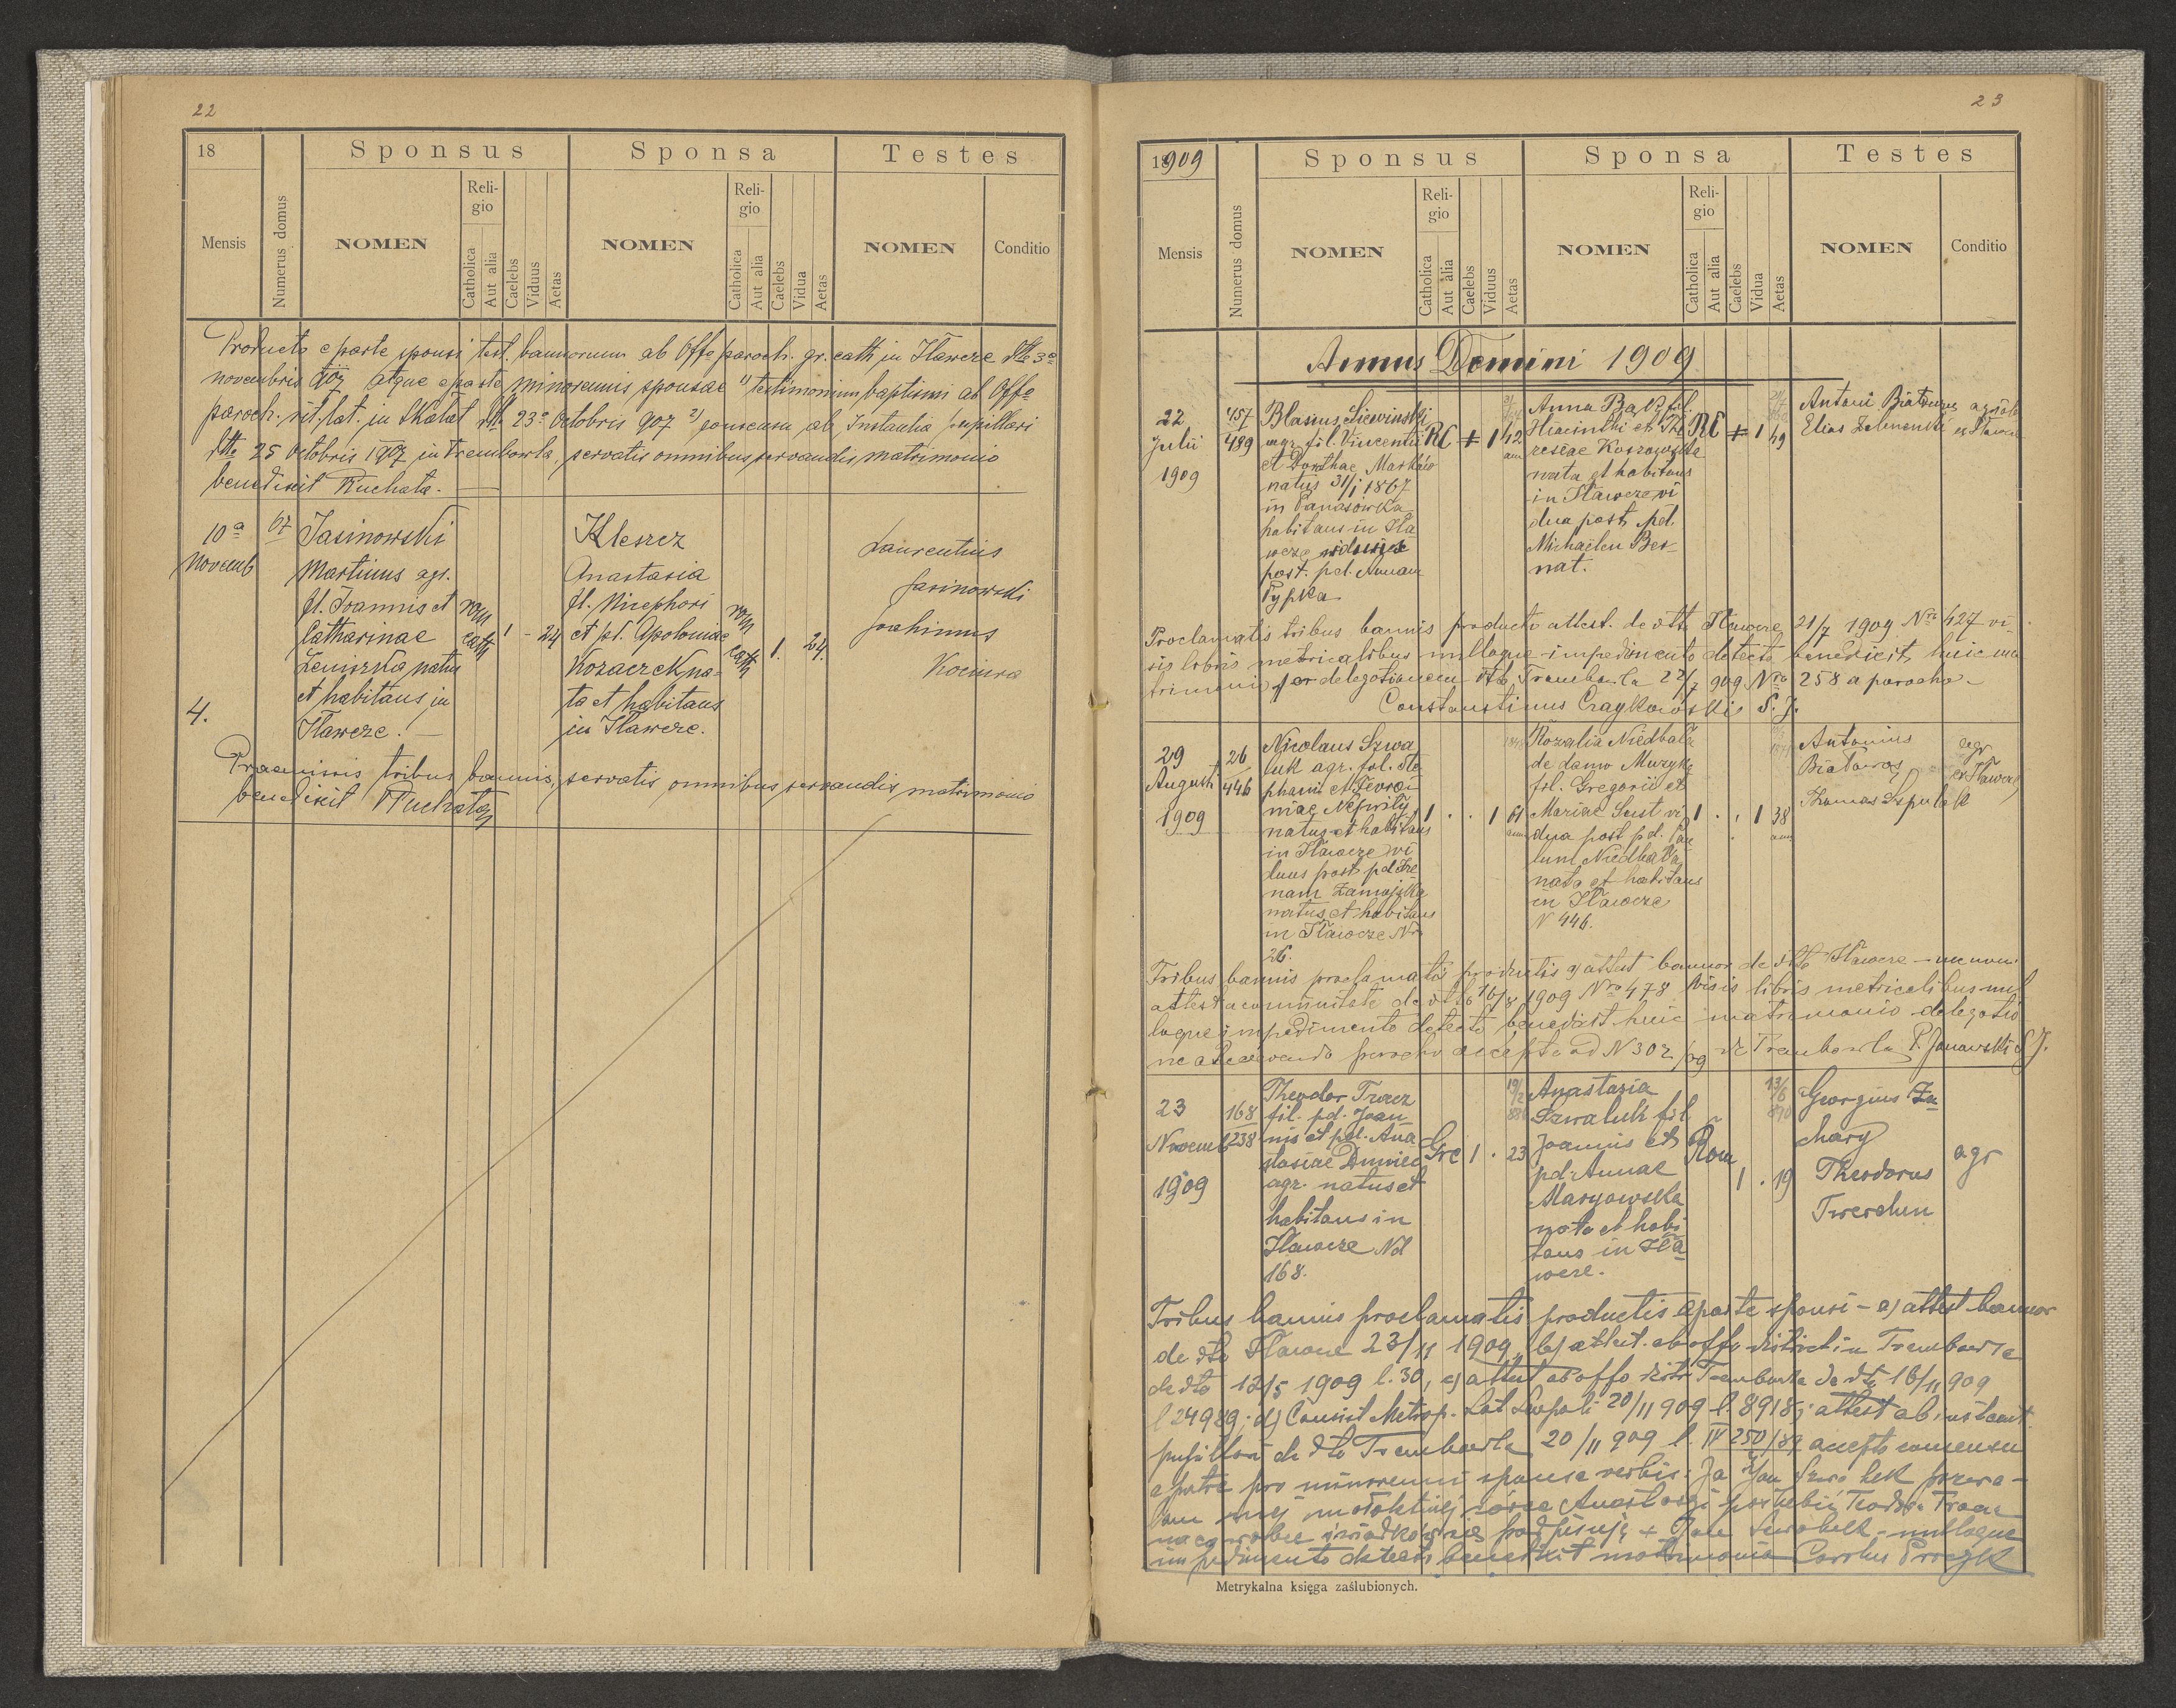 22
18
Sponsus
Sponsa
Testes
Mensis
Numerus domus
NOMEN
Reli-
gio
Catholica
Aut alia
Caelebs
Viduus
Aetas
NOMEN
Reli-
gio
Catholica
Aut alia
Caelebs
Vidua
Aetas
NOMEN
Conditio
Producto e parte sponsi test. bannorum ab Offo paroch. gr. cath. in Iławcze dtto 3a
novembris 907 atque e parte minorennis sponsae 1) testimonium baptismi ab Offo
paroch. rit. lat. in Skałat dtto 23a Octobris 907 2) consensu ab Instantia pupillari
dtto 25 Octobris 1907 in Trembowla, servatis omnibus servandis matrimonio
benedixit Kuchata.
10a
Novemb
67
4.
Jasinowski
Martinus agr.
fil. Joannis et
Catharinae
natus
et habitans in
Iławcze.
rom
cath
1 - 24
Kleszcz
Anastasia
fil. Nicephori
et pd. Apoloniae
Kozaczek na-
ta et habitans
in Iławcze.
rom
cath
1. 24.
Laurentius
Jasinowski
Joachimus
Kociura
Praemissis tribus bannis, servatis omnibus servandis, matrimonio
benedixit Kuchata
23
1909
Sponsus
Sponsa
Testes
Mensis
Numerus domus
NOMEN
Reli-
gio
Catholica
Aut alia
Caelebs
Viduus
Aetas
NOMEN
Reli-
gio
Catholica
Aut alia
Caelebs
Vidua
Aetas
NOMEN
Conditio
Annus Domini 1909
22
Julii
1909
457
489
Blasius Liswinski
agr. fil. Vincentii
et Dorothae
natus 31/1 1867
in Panasówka
habitans in Iła
wcze viduus
post. pd. Annam
Pypka
RC + 1 42
Anna fil.
Hiacinthi et The
resiae
nata et habitans
in Iławcze vi
dua post pd.
Michaëlem Ber-
nat.
RC + 1 49
Antoni Białowąs agricola
Elias
Proclamatis tribus bannis producto attest. de dtto Iławcze 21/7 1909 Nro 427 vi-
sis libris metricalibus nulloque impedimento detecto benedixit huic ma
trimonio per delegationem dtto Trembowla 22/7 909 Nro 258 a parocho
Constantinus Czaykowski S. J.
29
Augusti
1909
26
446
Nicolaus Szwa
luk agr. fil. Ste
phani et Fevro
niae
natus et habitans
in Iławcze vi
duus post pd Ire
nam Zamojska
natus et habitans
in Iławcze Nro
26.
1 . . 1 61
Rozalia Niedbała
de domo Muzyka
fil. Gregorii et
Mariae Sust vi
dua post pd. Pau
lum Niedbała
nata et habitans
in Iławcze
N 446.
1 . . 1 38
Antonius
Białowąs
Thomas Szpulak
agr
ex Iławcze
Tribus bannis proclamatis productis a) attest bannor de dtto Iławcze
attest a communitate de dtto 16/8 1909 Nro 478 visis libris metricalibus nul
loque impedimento detecto benedixit huic matrimonio delegatio
ne a Reverendo parocho accepta ad N 302/09 de Trembowla P. Janowski S J.
23
Novemb
1909
168
238
Theodor Tracz
fil. pd. Joan
nis et pd. Ana
stasiae
agr. natus et
habitans in
Iławcze Nd
168.
Grc 1 . 23
19/2
886
Anastazia
Szwaluk fil
Joannis et
pd. Annae
Maryowska
nata et habi
tans in Iła
wcze.
Rom
1 . 19
13/6
890
Georgius Za
chary
Theodorus
Twerdun
agr
Tribus bannis proclamatis productis a parte sponsi - a) attest bannor
de dto Iławcze 23/11 1909, b) attest. ab offo district. in Trembowla
de dto 12/5 1909 l. 30, c) attest ab offo distr Trembowla de dto 16/11 909
l 24989; d) Consist Metrop. Lat Leopoli 20/11 909 l. 8918; attest ab instant
pupillari de dto Trembowla 20/11 909 l. IV 250/89 accepto consensu
a patre pro minorenni sponsa verbis: Ja Jan Szwaluk pozwa-
lam mej małoletniej córce Anastazyi poślubić Teodora Tracza
na co wobec świadków się podpisuję + Jan Szwaluk - nulloque
impedimento detecto benedixit matrimonio Carolus
Metrykalna księga zaślubionych.